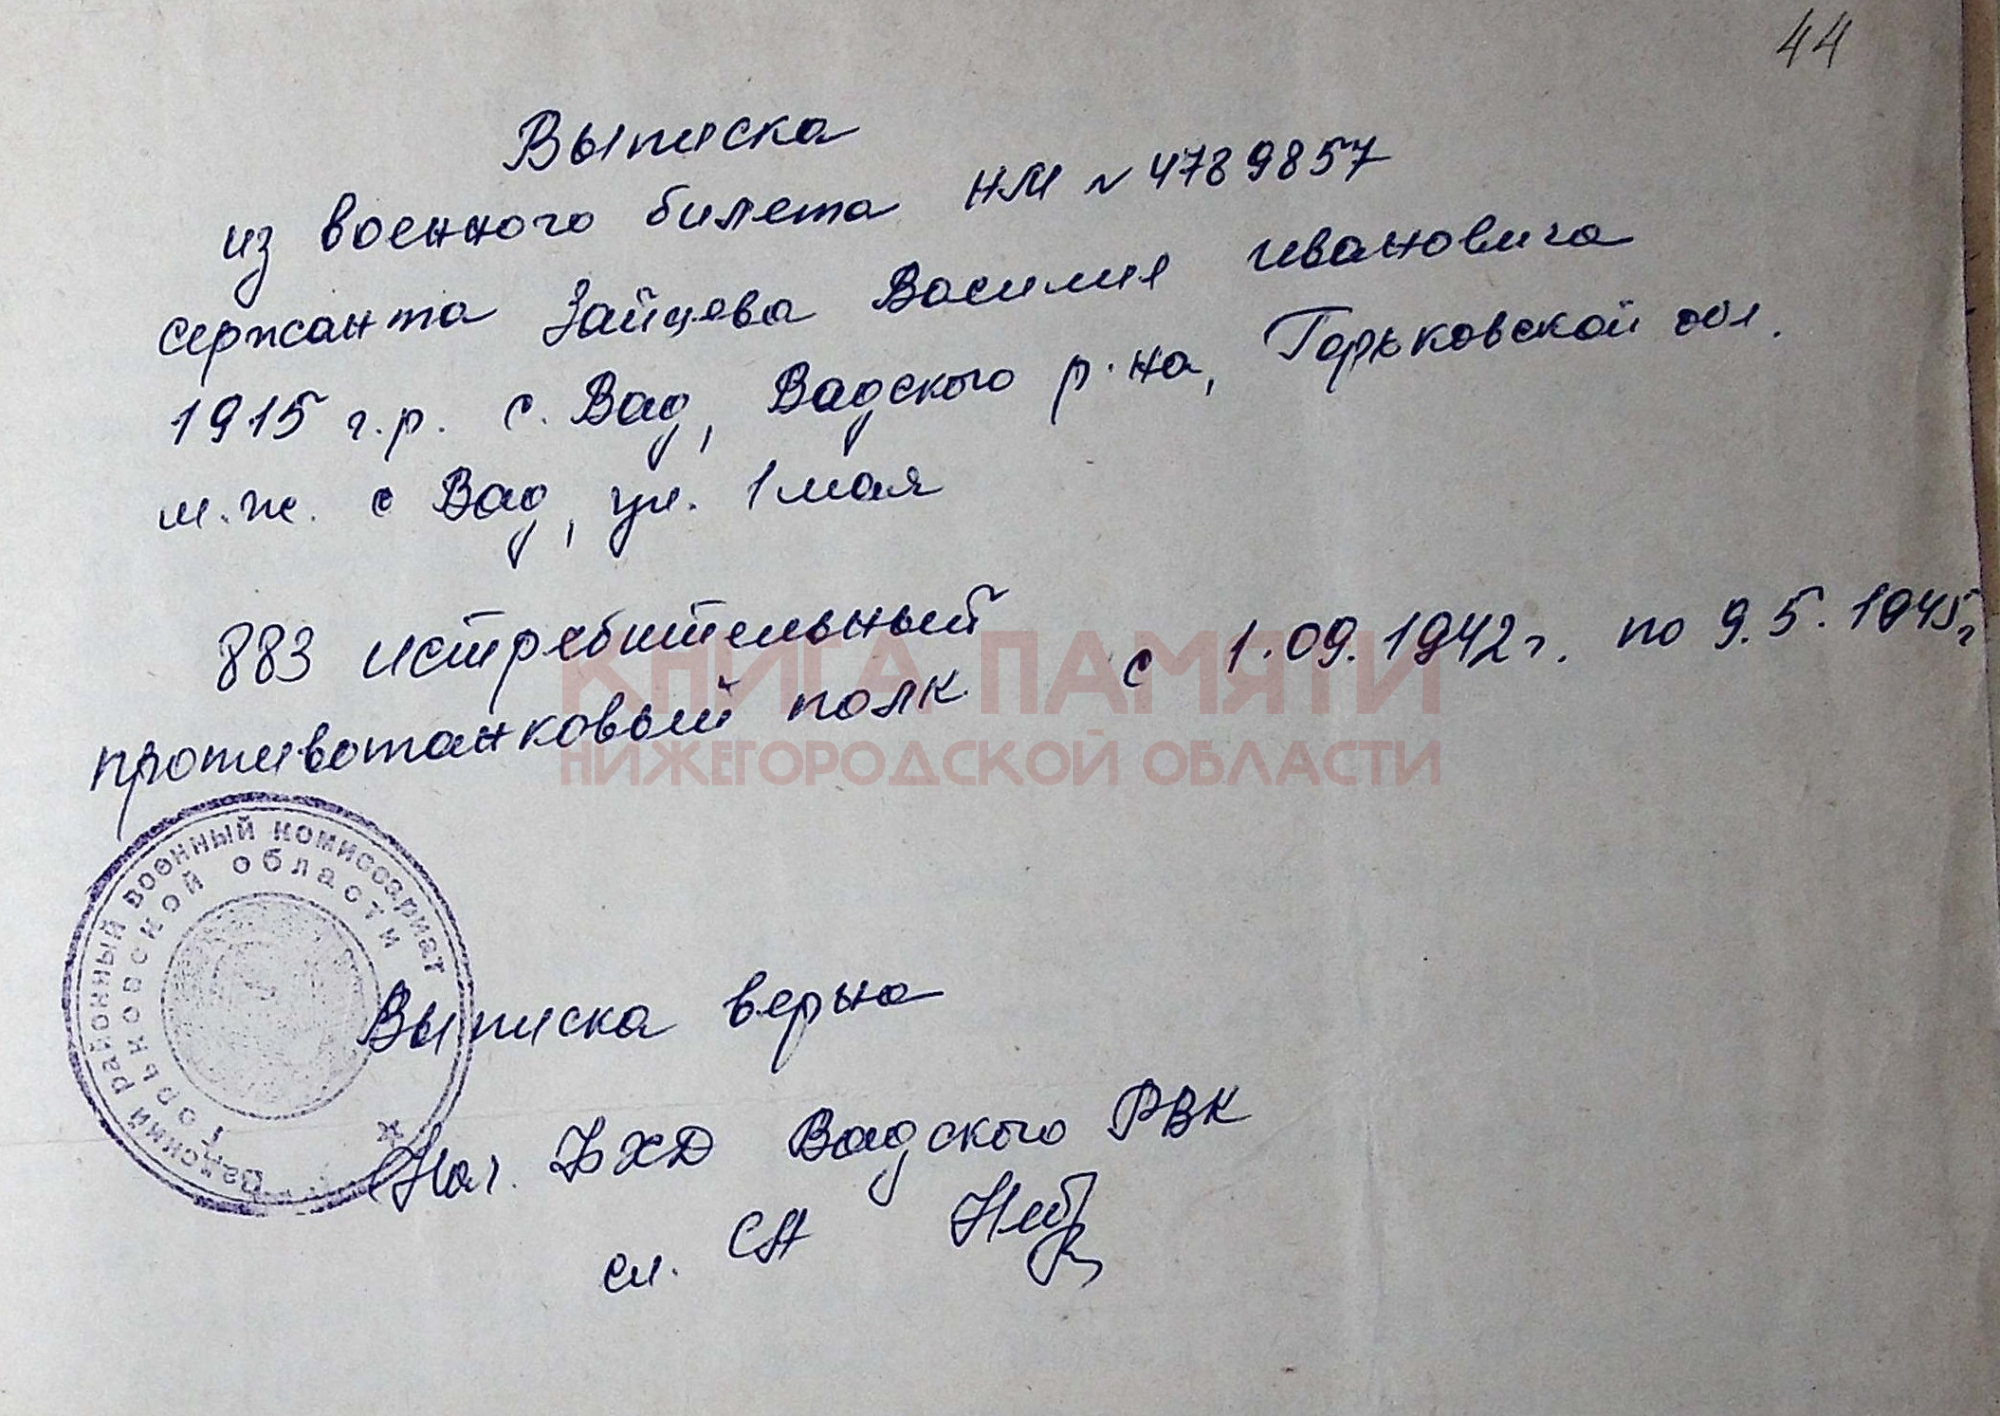 44
Выписка
из военного билета НМ № 4789857
сержанта Зайцева Василия Ивановича
1915 г.р. с. Вад, Вадского р-на, Горьковской обл.
м.ж. с Вад, ул. 1 мая
883 истребительный
противотанковый полк с 1.09.1942г. по 9.5.1945г
КНИГА ПАМЯТИ
НИЖЕГОРОДСКОЙ ОБЛАСТИ
Вадский районный военный комиссариат
Горьковской области
Выписка верна
Нач. Вадского РВК
сл.